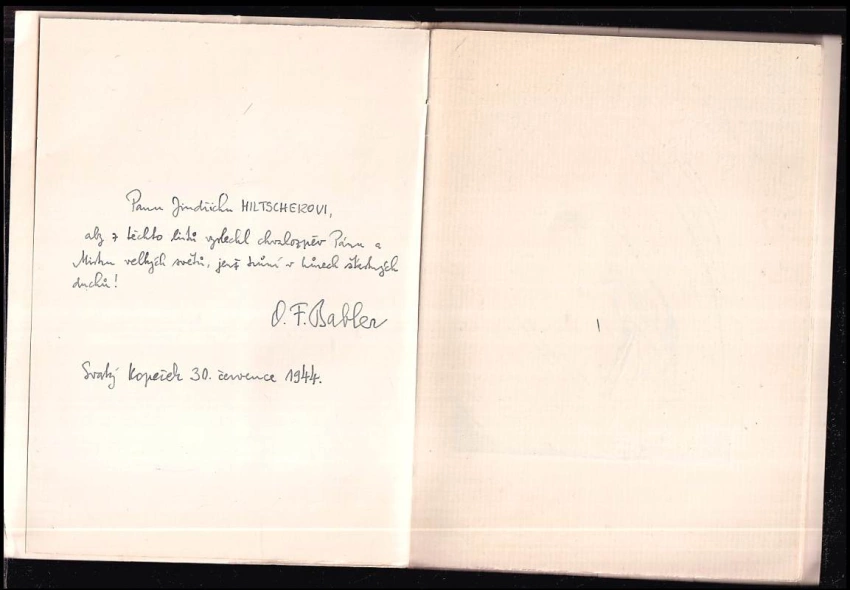 Panu Jindřichu HILTSCHEROVI,
aby z těchto listů vyslechl chvalozpěv Pánu a
Mistru velkých světů, jenž trůní v kůrech šťastných
duchů!
O. F. Babler
Svatý Kopeček 30. července 1944.